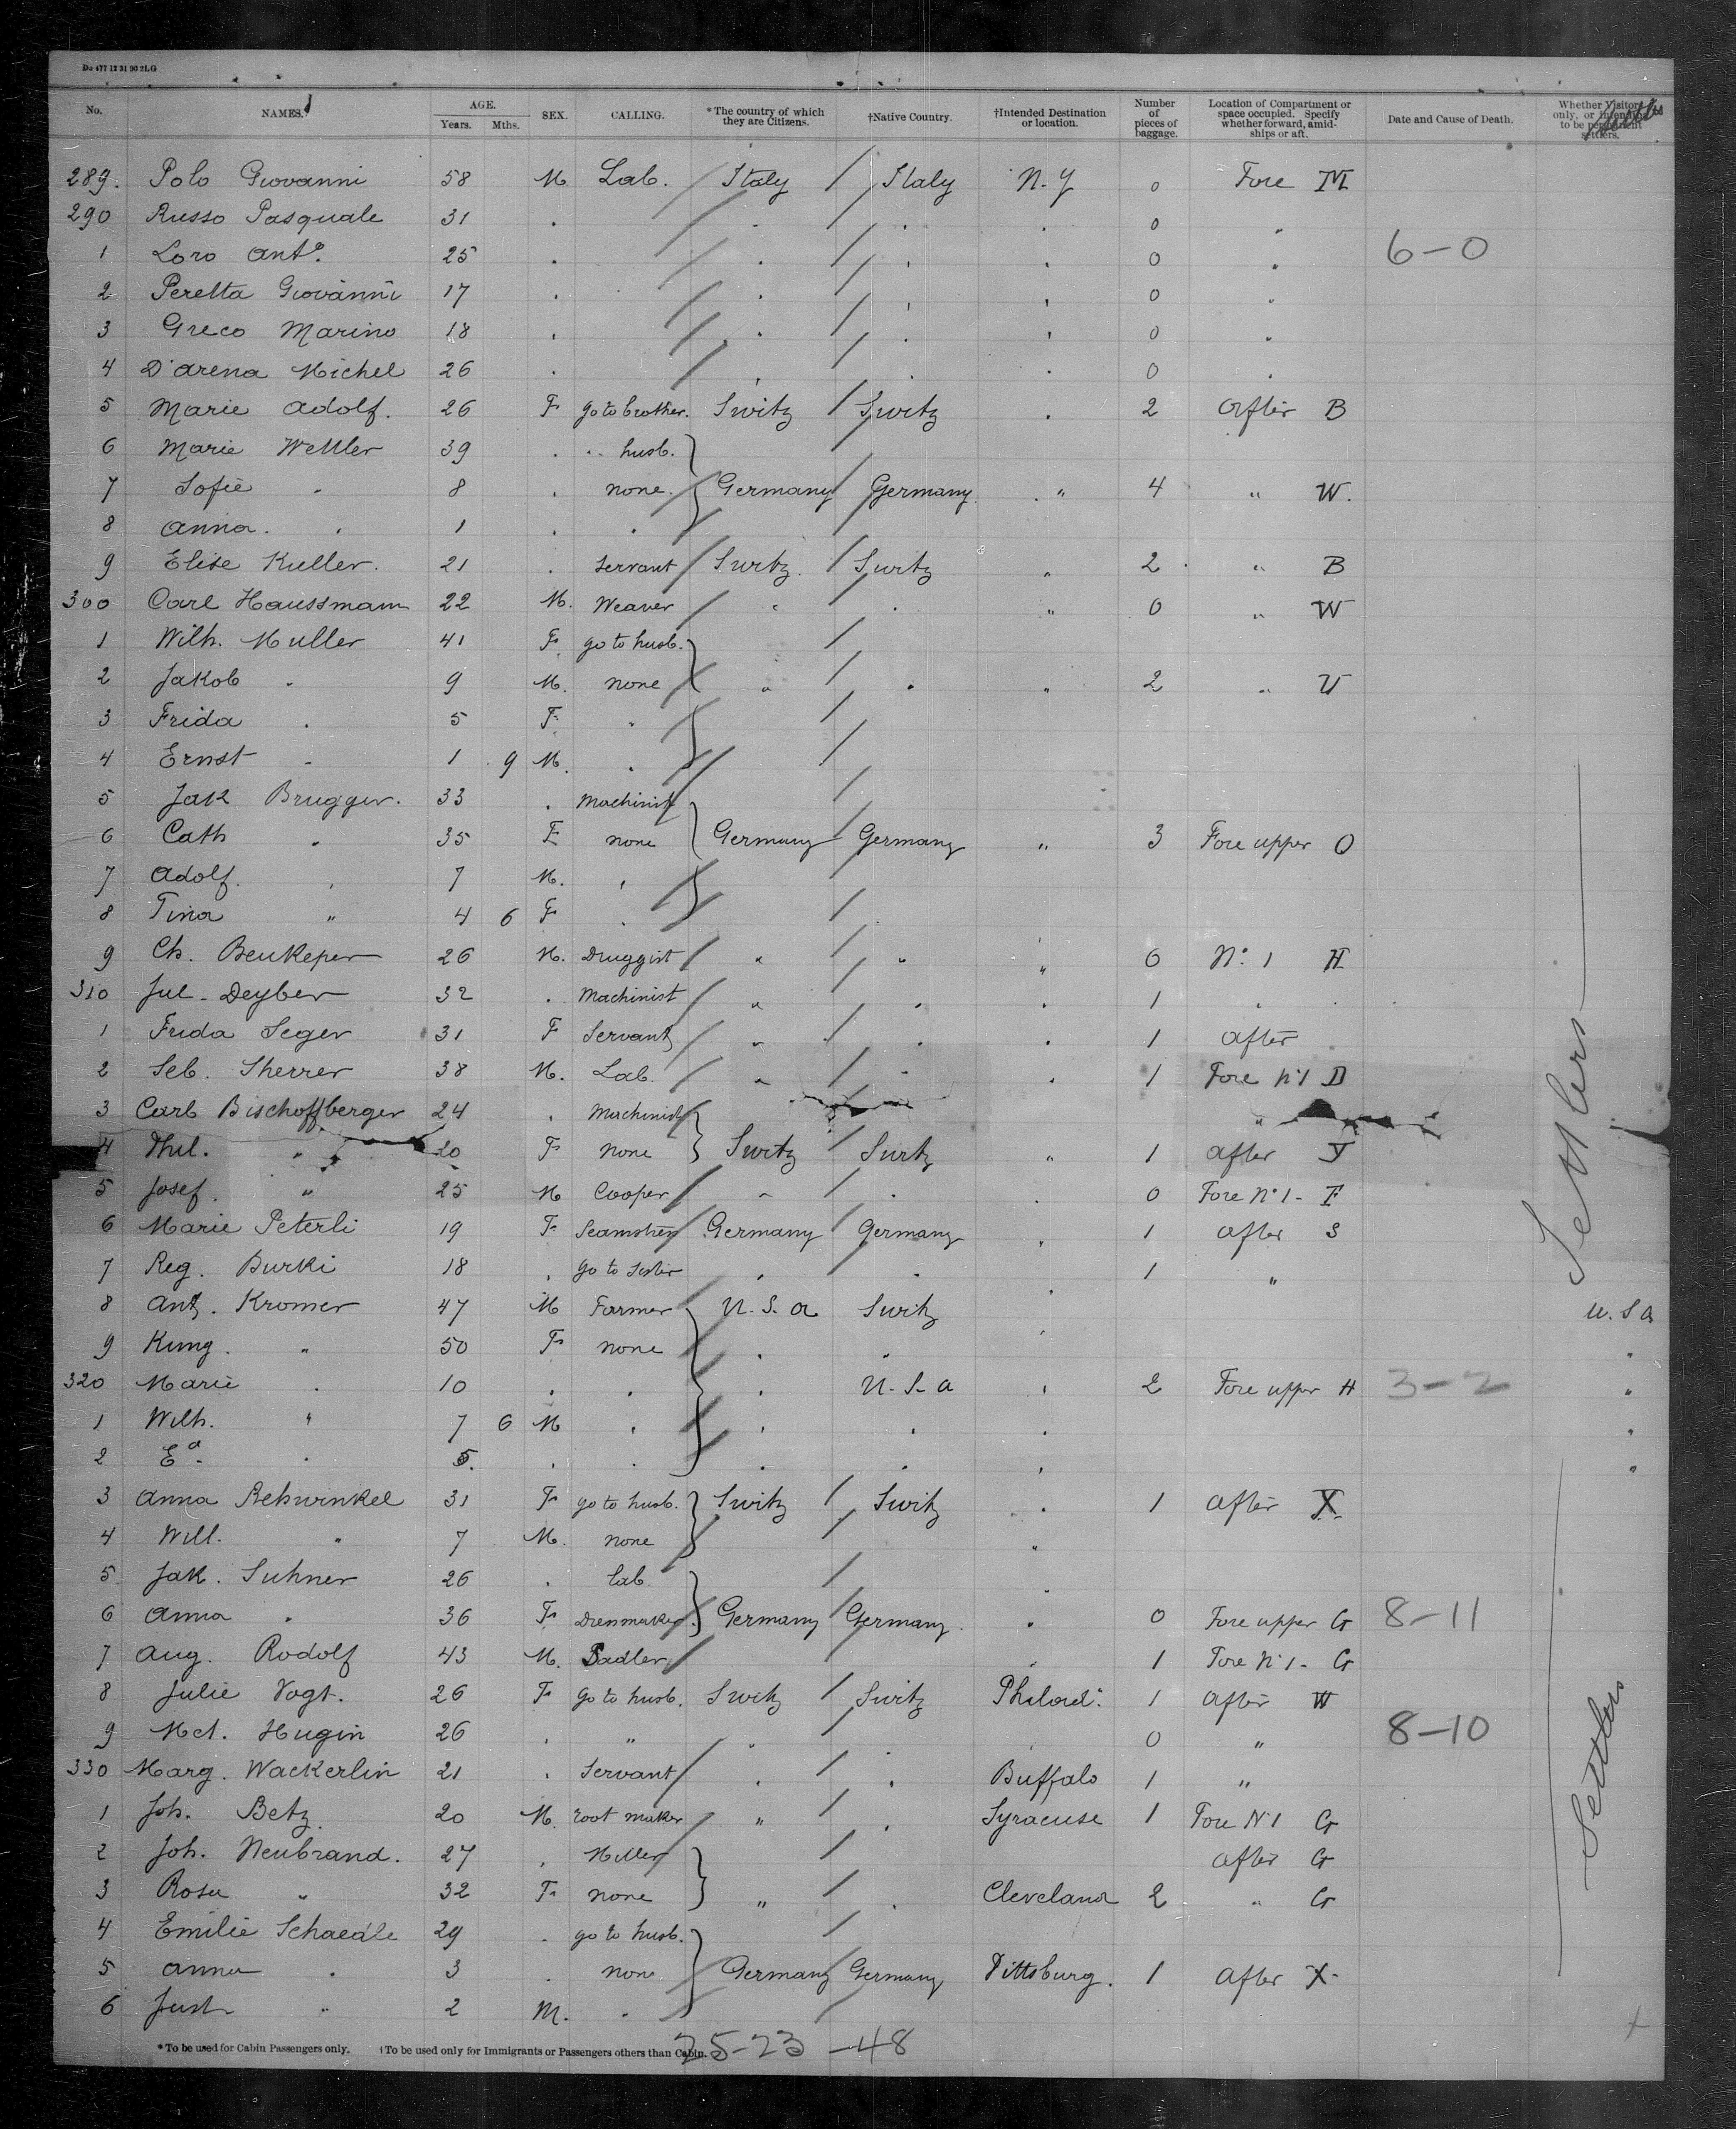 Do 477 12 31 90 2LG
No. NAMES. AGE. Years. Mths. SEX. CALLING. *The country of which they are Citizens. †Native Country. †Intended Destination or location. Number of pieces of baggage. Location of Compartment or space occupied. Specify whether forward, amidships or aft. Date and Cause of Death. Whether Visitors only, or intending to be permanent settlers.
289. Polo Giovanni 58 M Lab. Italy Italy N.Y 0 Fore M
290 Russo Pasquale 31 . . . . 0 "
1 Loro Anto. 25 . . . . 0 " 6-0
2 Peretta Giovanni 17 . . . . 0 "
3 Greco Marino 18 . . . . 0 "
4 D'Arena Michel 26 . . . . 0 .
5 Marie Adolf. 26 F go to brother. Switz Switz . 2 After B
6 Marie Wettler 39 . " husb.
7 Sofie " 8 . none. Germany Germany " 4 " W.
8 Anna. " 1 . .
9 Elise Kuller. 21 . Servant Switz. Switz " 2 " B
300 Carl Haussmann 22 M. Weaver " . " 0 " W
1 Wilh. Muller 41 F. go to husb.
2 Jakob " 9 M. none " . " 2 " U
3 Frida . 5 F. "
4 Ernst " 1 9 M. .
5 Jak Brugger. 33 . Machinist
6 Cath " 35 F none Germany Germany " 3 Fore upper O
7 Adolf. . 7 M. .
8 Tina " 4 6 F .
9 Ch. Beukeper 26 M. Druggist " " " 0 No. 1 H
310 Jul. Deyber 32 . Machinist " . . 1 "
1 Frida Seger 31 F Servant " . . 1 After
2 Seb. Sherrer 38 M. Lab. " " . 1 Fore No 1 D
3 Carl Bischoffberger 24 . Machinist "
4 " 20 F none Switz Switz " 1 After Y
5 Josef. " 25 M Cooper " . . 0 Fore No 1- F
6 Marie Peterli 19 F. Seamstress Germany Germany " 1 After S
7 Reg. Burki 18 . go to sister . . 1 "
8 Ant. Kromer 47 M Farmer U.S.A Switz . U.S.A
9 Kung. " 50 F none . " . "
320 Marie . 10 . . . U.S.A . 2 Fore upper H 3-2 "
1 Wilh. " 7 6 M . . . . "
2 Ed. . 5. . . . . . "
3 Anna Rehwinkel 31 F go to husb. Switz Switz . 1 After X
4 Will. " 7 M. none "
5 Jak. Suhner 26 . Lab. "
6 Anna " 36 F Dressmaker Germany Germany. " 0 Fore upper G 8-11
7 Aug. Rodolf 43 M. Sadler . 1 Fore No 1- G
8 Julie Vogt. 26 F go to husb. Switz Switz Philad. 1 After W
9 Hugin 26 . " " . 0 " 8-10
330 Marg. Wackerlin 21 . Servant . . Buffalo 1 "
1 Joh. Betz. 20 M. root maker " . Syracuse 1 Fore No 1 G
2 Joh. Neubrand. 27 . Miller After G
3 Rosa " 32 F none " . Cleveland 2 " G
4 Emilie Schaedle 29 . go to husb.
5 Anna . 3 . none Germany Germany Pittsburg. 1 After X.
6 Just " 2 M. .
Settlers
Settlers
*To be used for Cabin Passengers only. †To be used only for Immigrants or Passengers others than Cabin.
25-23 -48